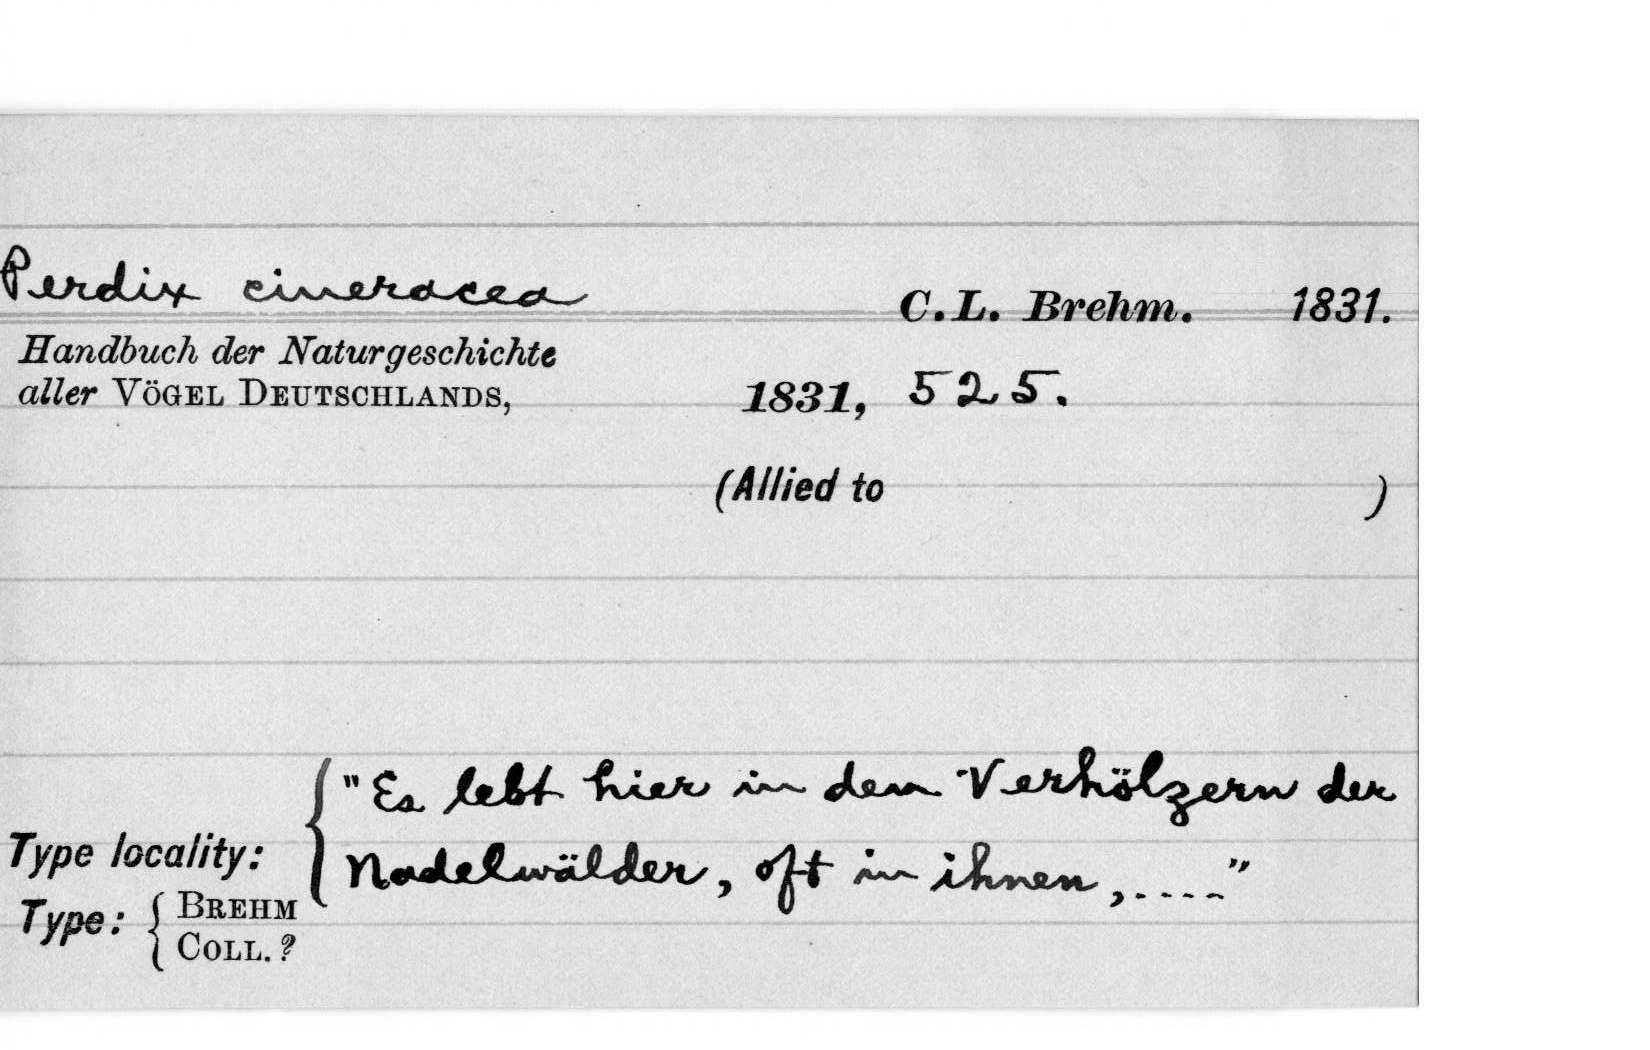 Perdix cineracea C.L. Brehm. 1831.
Handbuch der Naturgeschichte
aller VÖGEL DEUTSCHLANDS, 1831, 525.
(Allied to )
"Es lebt hier in den Verhölzern der
Type locality: Nadelwälder, oft in ihnen,....."
Type: { BREHM
COLL. ?